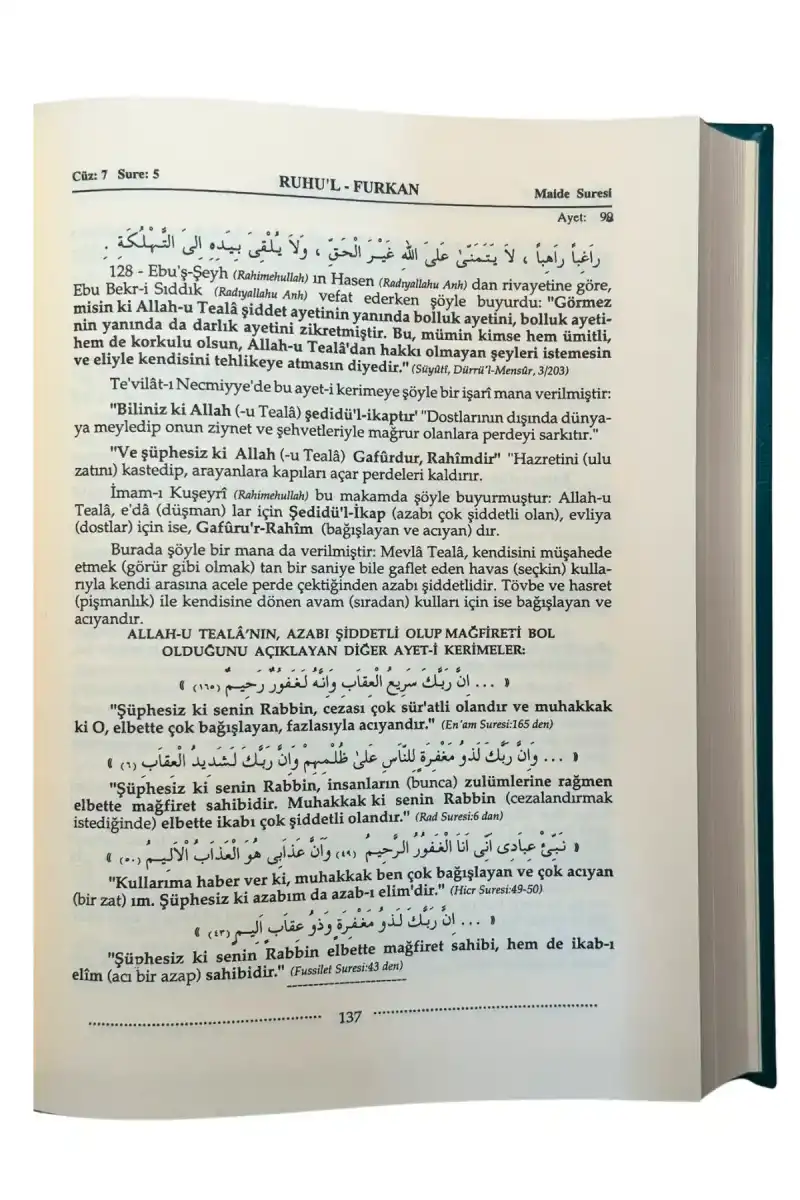 Cüz: 7 Sure: 5
RUHU'L - FURKAN
Maide Suresi
Ayet: 98
رَاغِباً رَاهِباً ، لاَ يَتَمَنَّىٰ عَلَى اللهِ غَيْرَ الْحَقِّ ، وَلاَ يُلْقِىَ بِيَدِهِ اِلَى التَّهْلُكَةِ .
128 - Ebu'ş-Şeyh (Rahimehullah) ın Hasen (Radıyallahu Anh) dan rivayetine göre,
Ebu Bekr-i Sıddık (Radıyallahu Anh) vefat ederken şöyle buyurdu: "Görmez
misin ki Allah-u Tealâ şiddet ayetinin yanında bolluk ayetini, bolluk ayeti-
nin yanında da darlık ayetini zikretmiştir. Bu, mümin kimse hem ümitli,
hem de korkulu olsun, Allah-u Tealâ'dan hakkı olmayan şeyleri istemesin
ve eliyle kendisini tehlikeye atmasın diyedir." (Süyûtî, Dürrü'l-Mensûr, 3/203)
Te'vilât-ı Necmiyye'de bu ayet-i kerimeye şöyle bir işarî mana verilmiştir:
"Biliniz ki Allah (-u Tealâ) şedidü'l-ikaptır' "Dostlarının dışında dünya-
ya meyledip onun ziynet ve şehvetleriyle mağrur olanlara perdeyi sarkıtır."
"Ve şüphesiz ki Allah (-u Tealâ) Gafûrdur, Rahîmdir" "Hazretini (ulu
zatını) kastedip, arayanlara kapıları açar perdeleri kaldırır.
İmam-ı Kuşeyrî (Rahimehullah) bu makamda şöyle buyurmuştur: Allah-u
Tealâ, e'dâ (düşman) lar için Şedidü'l-İkap (azabı çok şiddetli olan), evliya
(dostlar) için ise, Gafûru'r-Rahîm (bağışlayan ve acıyan) dır.
Burada şöyle bir mana da verilmiştir: Mevlâ Tealâ, kendisini müşahede
etmek (görür gibi olmak) tan bir saniye bile gaflet eden havas (seçkin) kulla-
rıyla kendi arasına acele perde çektiğinden azabı şiddetlidir. Tövbe ve hasret
(pişmanlık) ile kendisine dönen avam (sıradan) kulları için ise bağışlayan ve
acıyandır.
ALLAH-U TEALÂ'NIN, AZABI ŞİDDETLİ OLUP MAĞFİRETİ BOL
OLDUĞUNU AÇIKLAYAN DİĞER AYET-İ KERİMELER:
﴿ ... اِنَّ رَبَّكَ سَرِيعُ الْعِقَابِ وَاِنَّهُ لَغَفُورٌ رَحِيمٌ (١٦٥) ﴾
"Şüphesiz ki senin Rabbin, cezası çok sür'atli olandır ve muhakkak
ki O, elbette çok bağışlayan, fazlasıyla acıyandır." (En'am Suresi:165 den)
﴿ ... وَاِنَّ رَبَّكَ لَذُو مَغْفِرَةٍ لِلنَّاسِ عَلَىٰ ظُلْمِهِمْ وَاِنَّ رَبَّكَ لَشَدِيدُ الْعِقَابِ (٦) ﴾
"Şüphesiz ki senin Rabbin, insanların (bunca) zulümlerine rağmen
elbette mağfiret sahibidir. Muhakkak ki senin Rabbin (cezalandırmak
istediğinde) elbette ikabı çok şiddetli olandır." (Rad Suresi:6 dan)
﴿ نَبِّئْ عِبَادِى اَنِّى اَنَا الْغَفُورُ الرَّحِيمُ (٤٩) وَاَنَّ عَذَابِى هُوَ الْعَذَابُ الْاَلِيمُ (٥٠) ﴾
"Kullarıma haber ver ki, muhakkak ben çok bağışlayan ve çok acıyan
(bir zat) ım. Şüphesiz ki azabım da azab-ı elim'dir." (Hicr Suresi:49-50)
﴿ ... اِنَّ رَبَّكَ لَذُو مَغْفِرَةٍ وَذُو عِقَابٍ اَلِيمٍ (٤٣) ﴾
"Şüphesiz ki senin Rabbin elbette mağfiret sahibi, hem de ikab-ı
elîm (acı bir azap) sahibidir." (Fussilet Suresi:43 den)
137